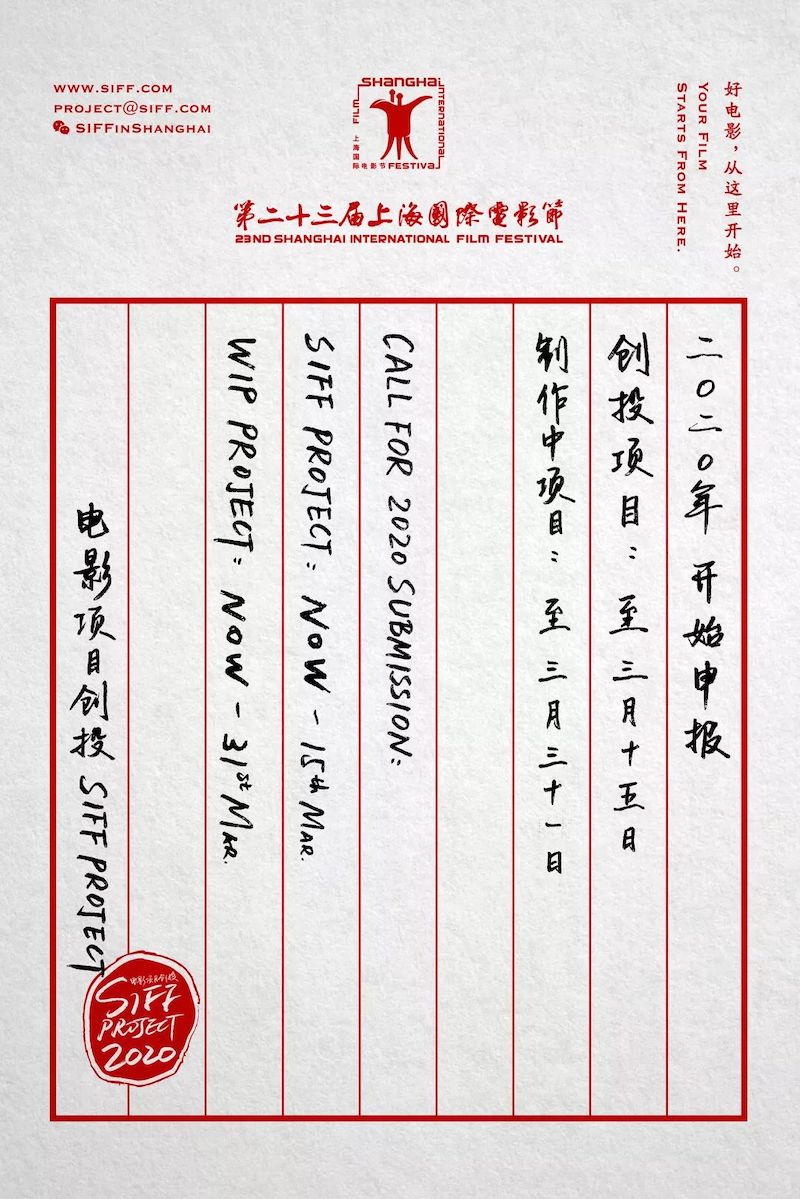 WWW.SIFF.COM
PROJECT@SIFF.COM
SIFFINSHANGHAI
SHANGHAI
INTERNATIONAL
FILM
FESTIVAL
上海国际电影节
第二十三届上海國際電影節
23ND SHANGHAI INTERNATIONAL FILM FESTIVAL
好电影，从这里开始。
YOUR FILM
STARTS FROM HERE.
二〇二〇年 开始申报
创投项目：至三月十五日
制作中项目：至三月三十一日
CALL FOR 2020 SUBMISSION:
SIFF PROJECT: NOW - 15th MAR.
WIP PROJECT: NOW - 31st MAR.
电影项目创投 SIFF PROJECT
电影项目创投
SIFF
PROJECT
2020